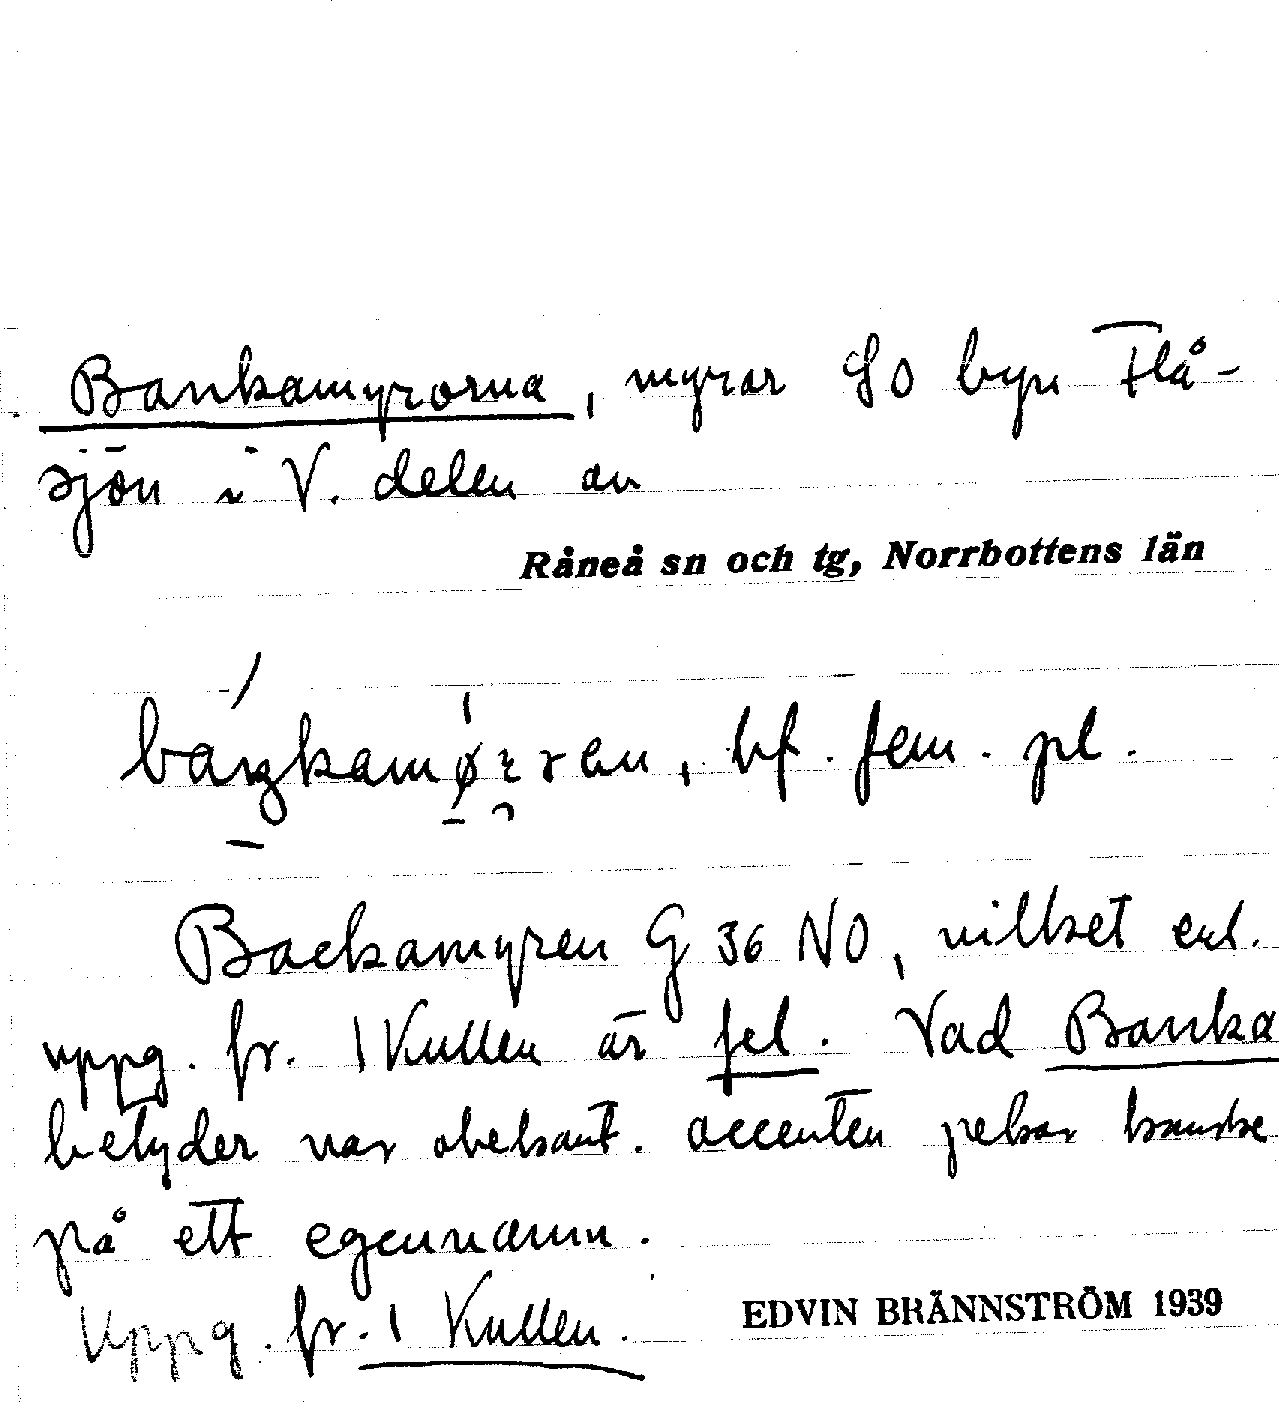 Bankamyrorna, myrar SO byn Flå-
sjön i V. delen av
Råneå sn och tg, Norrbottens län
báŋkamø̀rran, bf. fem. pl.
Backamyren G 36 NO, vilket enl.
uppg. fr. 1 Kullen är fel. Vad Banka
betyder var obekant. Accenten pekar kanske
på ett egennamn.
Uppg. fr. 1 Kullen.
EDVIN BRÄNNSTRÖM 1939